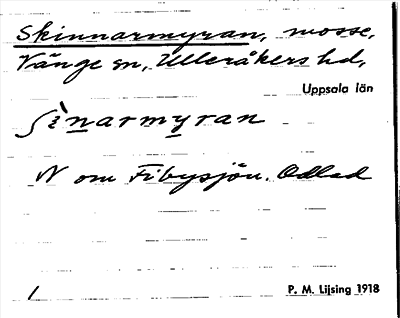 Skinnarmyran, mosse,
Vänge sn, Ulleråkers hd,
Uppsala län
ʃὶnarmyran
N om Fibysjön. Odlad
/ P. M. Lijsing 1918